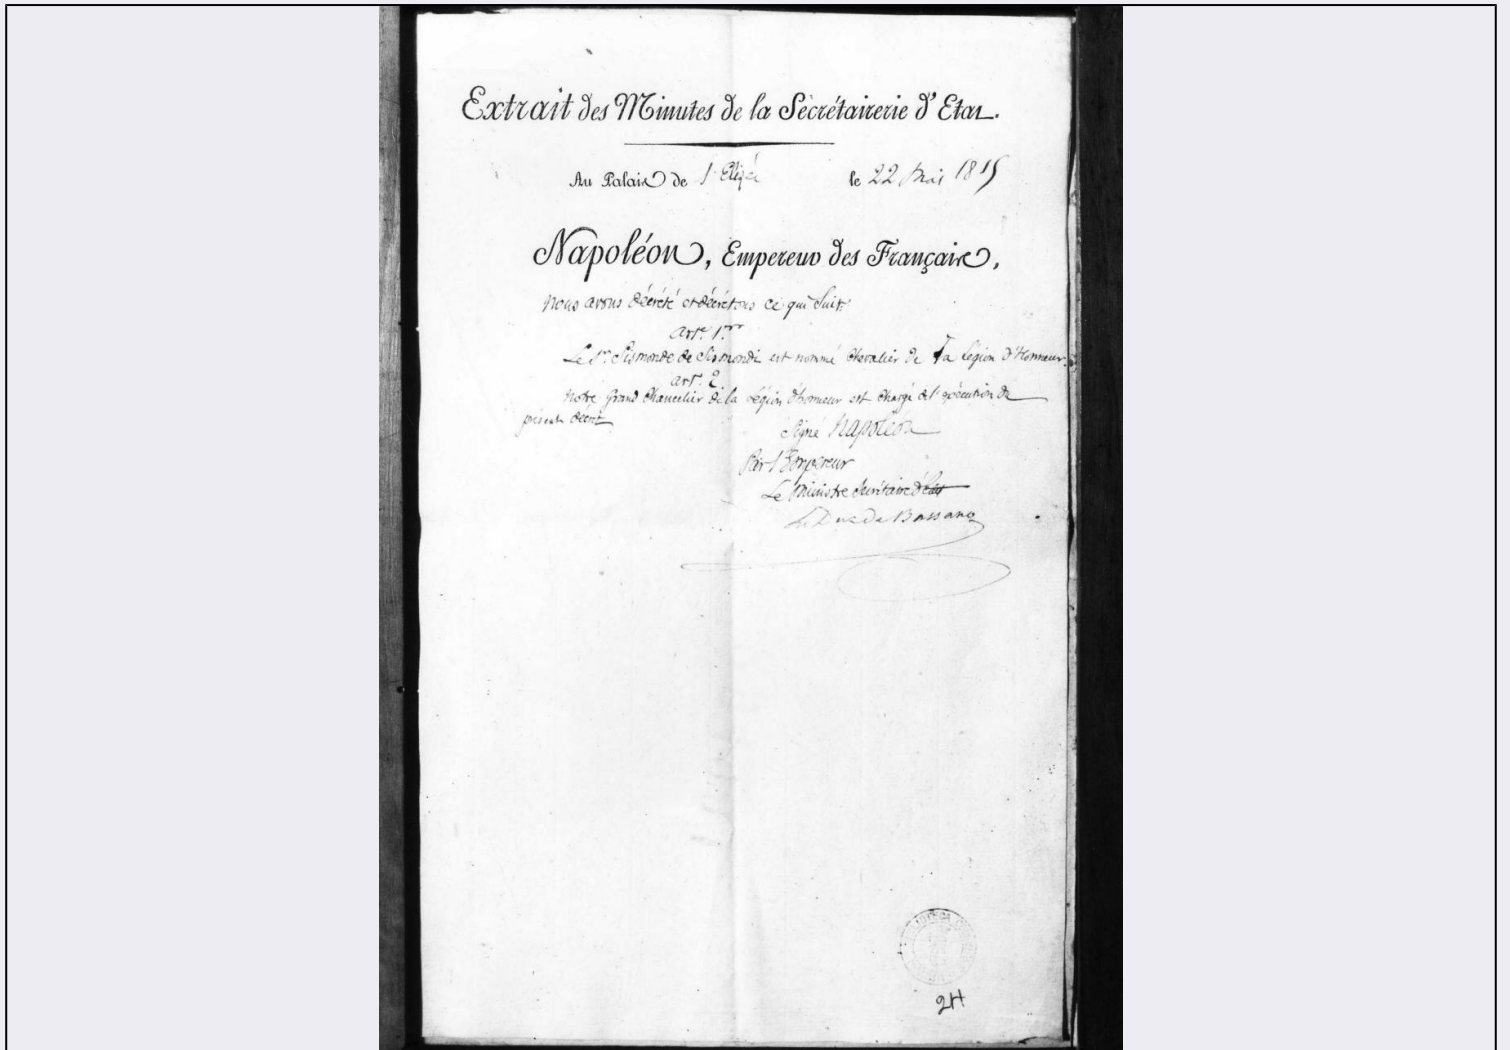 Extrait des Minutes de la Secrétairerie d'Etat.
Au Palais de l'Elisée le 22 Mai 1815
Napoléon, Empereur des Français,
Nous avons décrété et décrétons ce qui suit:
art. 1.er
Le Sr. Sismonde de Sismondi est nommé Chevalier de la Légion d'Honneur.
art. 2
Notre Grand Chancelier de la Légion d'honneur est chargé de l'exécution du
présent décret
Signé Napoléon
Par l'Empereur
Le Ministre Secrétaire d'Etat
Le Duc de Bassano
24